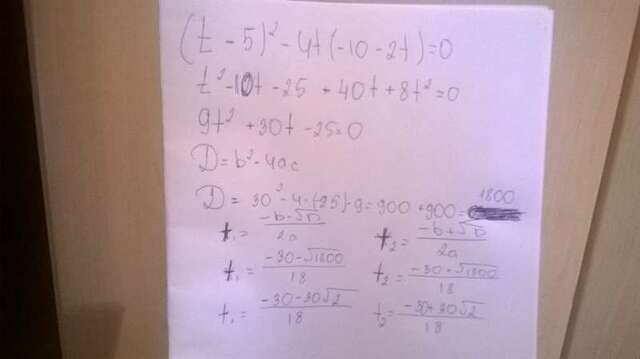 (t - 5)² - 4t(-10 - 2t) = 0
t² - 10t - 25 + 40t + 8t² = 0
9t² + 30t - 25 = 0
D = b² - 4ac
D = 30² - 4·(-25)·9 = 900 + 900 = 1800
t₁ = (-b - √D)/2a t₂ = (-b + √D)/2a
t₁ = (-30 - √1800)/18 t₂ = (-30 + √1800)/18
t₁ = (-30 - 30√2)/18 t₂ = (-30 + 30√2)/18